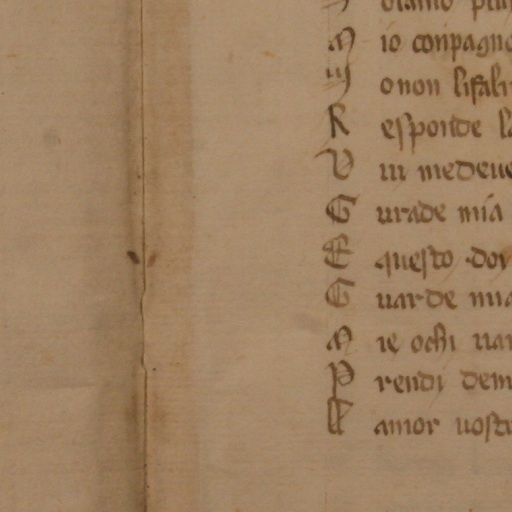 M io conpagno
M onon lifali
R esponde la
V ui medeue
G uarde mia
E questo don
G uarde mia
M ie ochi uar
P rendi dem
L amor uostr